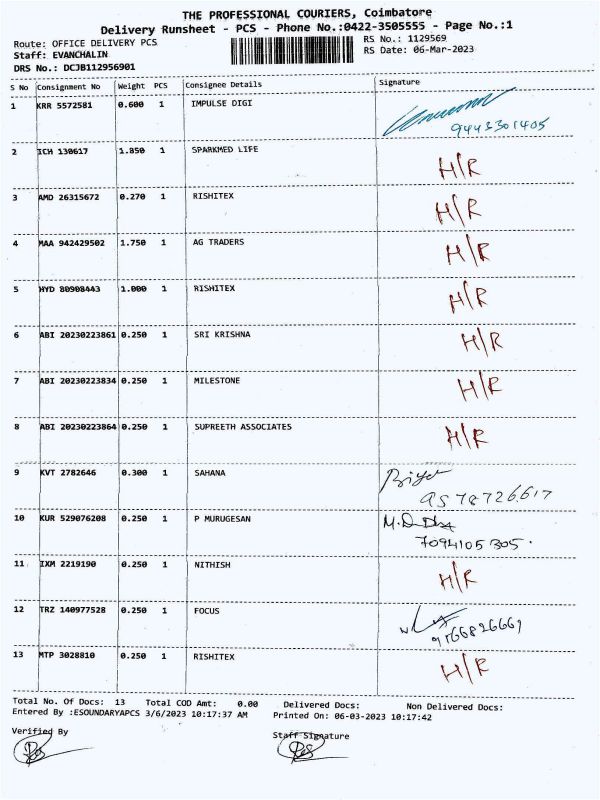 THE PROFESSIONAL COURIERS, Coimbatore
Delivery Runsheet - PCS - Phone No.:0422-3505555 - Page No.:1
Route: OFFICE DELIVERY PCS RS No.: 1129569
Staff: EVANCHALIN RS Date: 06-Mar-2023
DRS No.: DCJB112956901
S No Consignment No Weight PCS Consignee Details Signature
1 KRR 5572581 0.600 1 IMPULSE DIGI
9443301405
2 ICH 130617 1.850 1 SPARKMED LIFE H/R
3 AMD 26315672 0.270 1 RISHITEX H/R
4 MAA 942429502 1.750 1 AG TRADERS H/R
5 HYD 80908443 1.000 1 RISHITEX H/R
6 ABI 20230223861 0.250 1 SRI KRISHNA H/R
7 ABI 20230223834 0.250 1 MILESTONE H/R
8 ABI 20230223864 0.250 1 SUPREETH ASSOCIATES H/R
9 KVT 2782646 0.300 1 SAHANA
9578726617
10 KUR 529076208 0.250 1 P MURUGESAN
7094105305.
11 IXM 2219190 0.250 1 NITHISH H/R
12 TRZ 140977528 0.250 1 FOCUS
9166826661
13 MTP 3028810 0.250 1 RISHITEX H/R
Total No. Of Docs: 13 Total COD Amt: 0.00 Delivered Docs: Non Delivered Docs:
Entered By :ESOUNDARYAPCS 3/6/2023 10:17:37 AM Printed On: 06-03-2023 10:17:42
Verified By Staff Signature